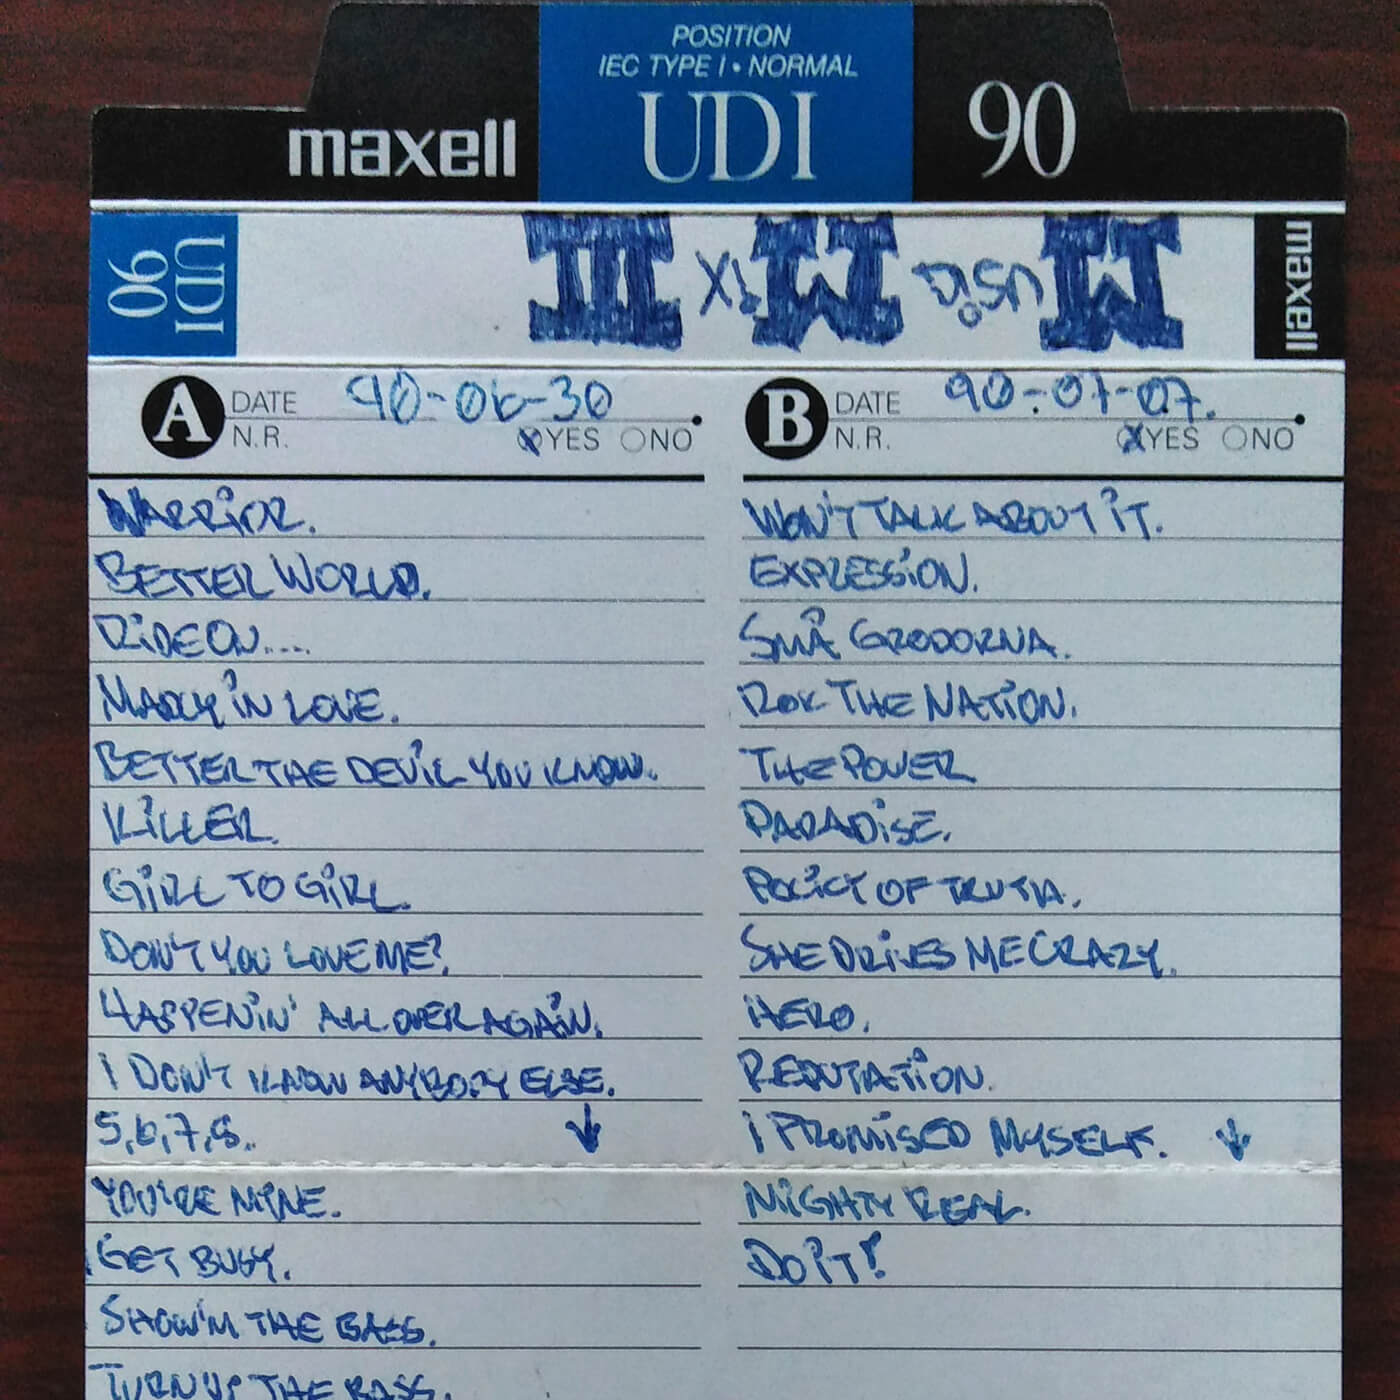 POSITION
IEC TYPE I • NORMAL
maxell UDI 90
UDI 90
MUSIC MIX III
maxell
A DATE 90-06-30
N.R. YES NO
WARRIOR.
BETTER WORLD.
RIDE ON....
MARY IN LOVE.
BETTER THE DEVIL YOU KNOW.
KILLER.
GIRL TO GIRL.
DON'T YOU LOVE ME?
HAPPENIN' ALL OVER AGAIN.
I DON'T KNOW ANYBODY ELSE.
5,6,7,8.. ↓
YOU'RE MINE.
GET BUSY.
SHOW'M THE BASS.
TURN UP THE BASS.
B DATE 90-07-07.
N.R. YES NO
WON'T TALK ABOUT IT.
EXPRESSION.
SMÅ GRODORNA.
ROK THE NATION.
THE POWER
PARADISE.
POLICY OF TRUTH.
SHE DRIVES ME CRAZY.
HERO.
REPUTATION.
I PROMISED MYSELF. ↓
MIGHTY REAL.
DO IT!